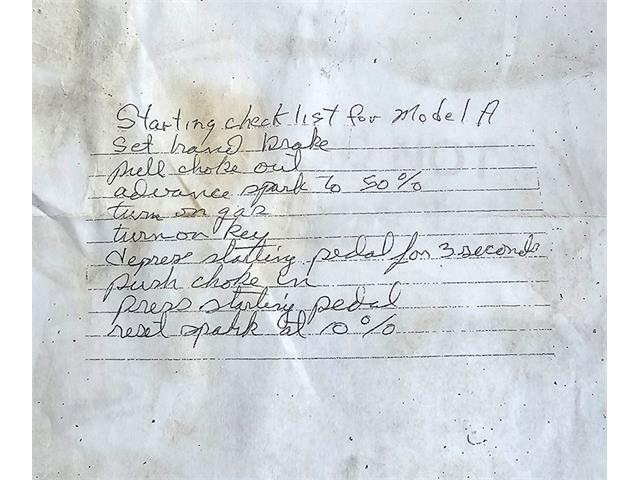 Starting check list for Model A
set hand brake
pull choke out
advance spark to 50%
turn on gas
turn on key
depress starting pedal for 3 seconds
push choke in
press starting pedal
reset spark at 10%